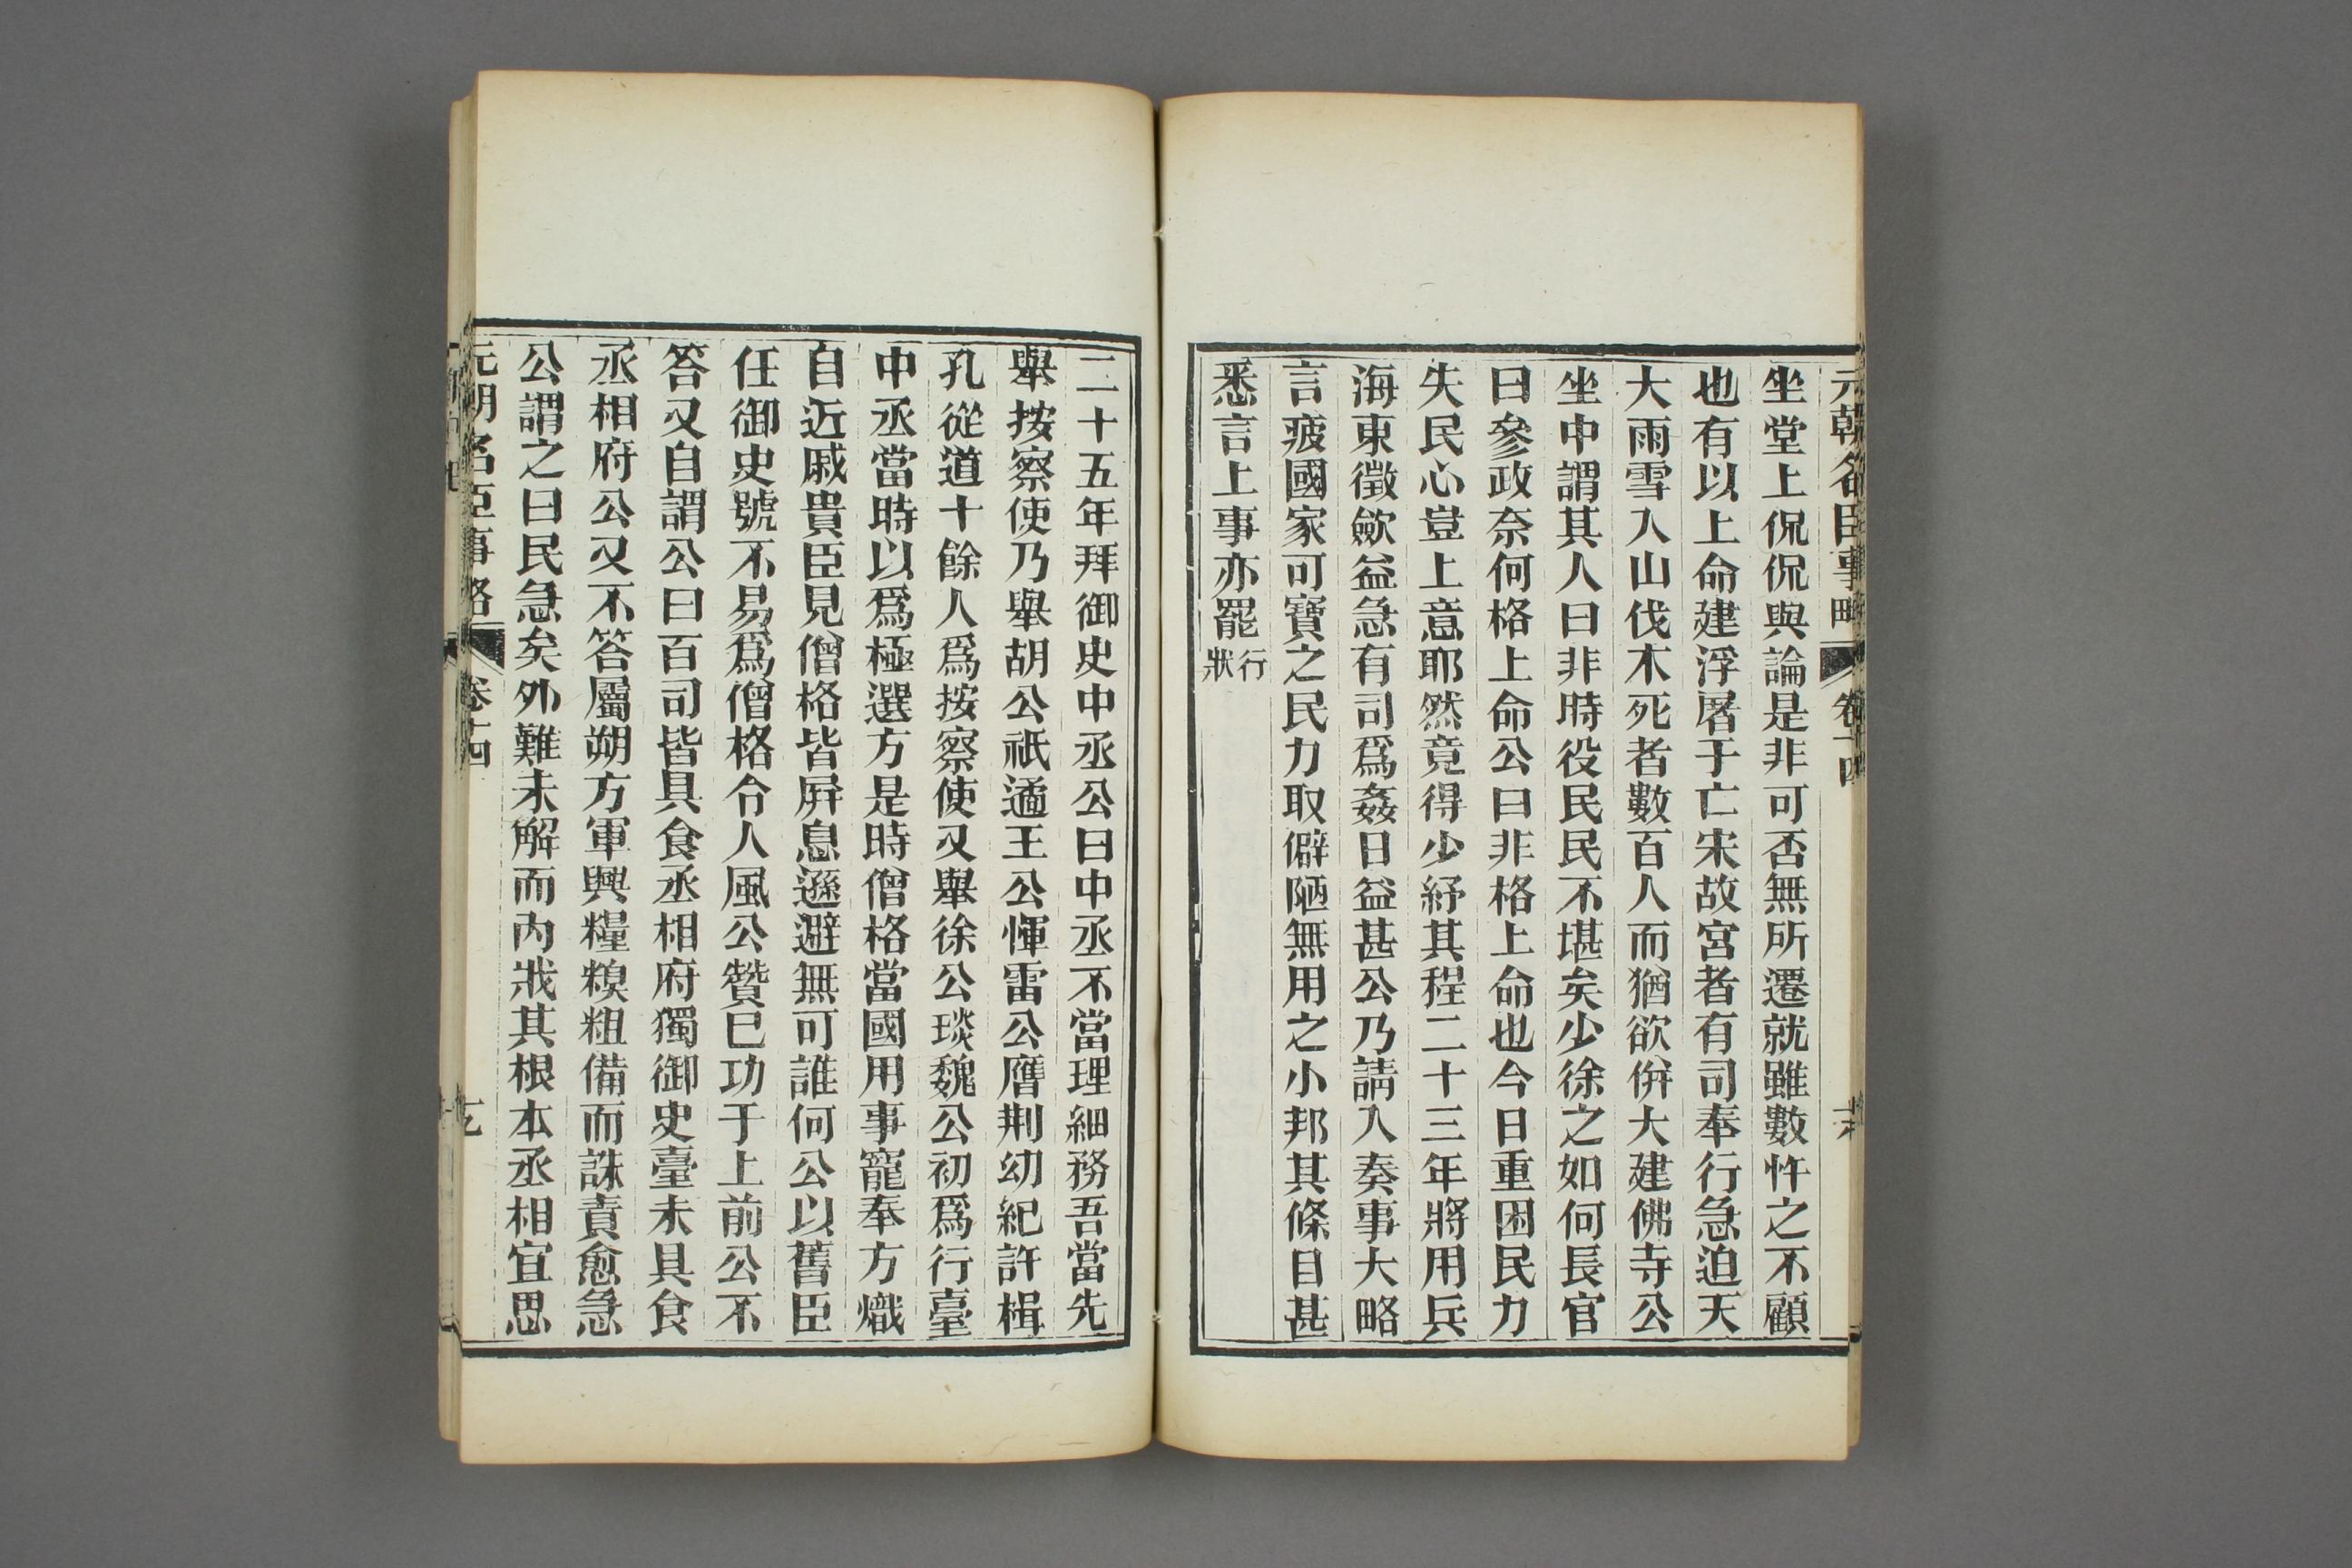 元朝名臣事略 卷十四
坐堂上侃侃與論是非可否無所遷就雖數忤之不顧
也有以上命建浮屠于亡宋故宮者有司奉行急迫天
大雨雪入山伐木死者數百人而猶欲併大建佛寺公
坐中謂其人曰非時役民民不堪矣少徐之如何長官
曰參政奈何格上命公曰非格上命也今日重困民力
失民心豈上意耶然竟得少紓其程二十三年將用兵
海東徵歛益急有司爲姦日益甚公乃請入奏事大略
言疲國家可寶之民力取僻陋無用之小邦其條目甚
悉言上事亦罷行狀
二十五年拜御史中丞公曰中丞不當理細務吾當先
舉按察使乃舉胡公祇遹王公惲雷公膺荆幼紀許楫
孔從道十餘人爲按察使又舉徐公琰魏公初爲行臺
中丞當時以爲極選方是時僧格當國用事寵奉方熾
自近戚貴臣見僧格皆屛息遜避無可誰何公以舊臣
任御史號不易爲僧格令人風公贊巳功于上前公不
答又自謂公曰百司皆具食丞相府獨御史臺未具食
丞相府公又不答屬朔方軍興糧糗粗備而誅責愈急
公謂之曰民急矣外難未解而内戕其根本丞相宜思
元朝名臣事略 卷十四